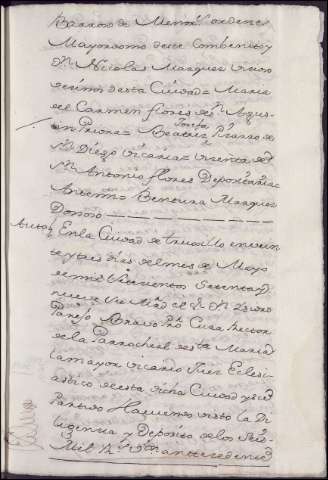 Barroso de Menor ordenes
Mayordomo deste Combento y
Dn Nicolas Marquez vecino
desta Ciudad = Maria
del Carmen flores de Sn Agus
tin Priora = Beatriz Josepha Pizarro de
Sn Diego Vicaria = Vicenta de
Sn Antonio flores Depositaria =
Antemi Bentura Marquez
Donoso
Autto En la Ciudad de Truxillo en vein
te y tres dias del mes de Mayo
de mil Setecientos Sesenta y
nueve Su Mrd el Sr Dn
Parejo Bravo Pbo Cura Rector
de la Parrochial de Sta Maria
la mayor Vicario Juez Ecclesi
astico de esta dicha Ciudad y su
Partido Haviendo visto la Di
ligencia y Deposito de los Seis
Mil Rs Vn antecedente